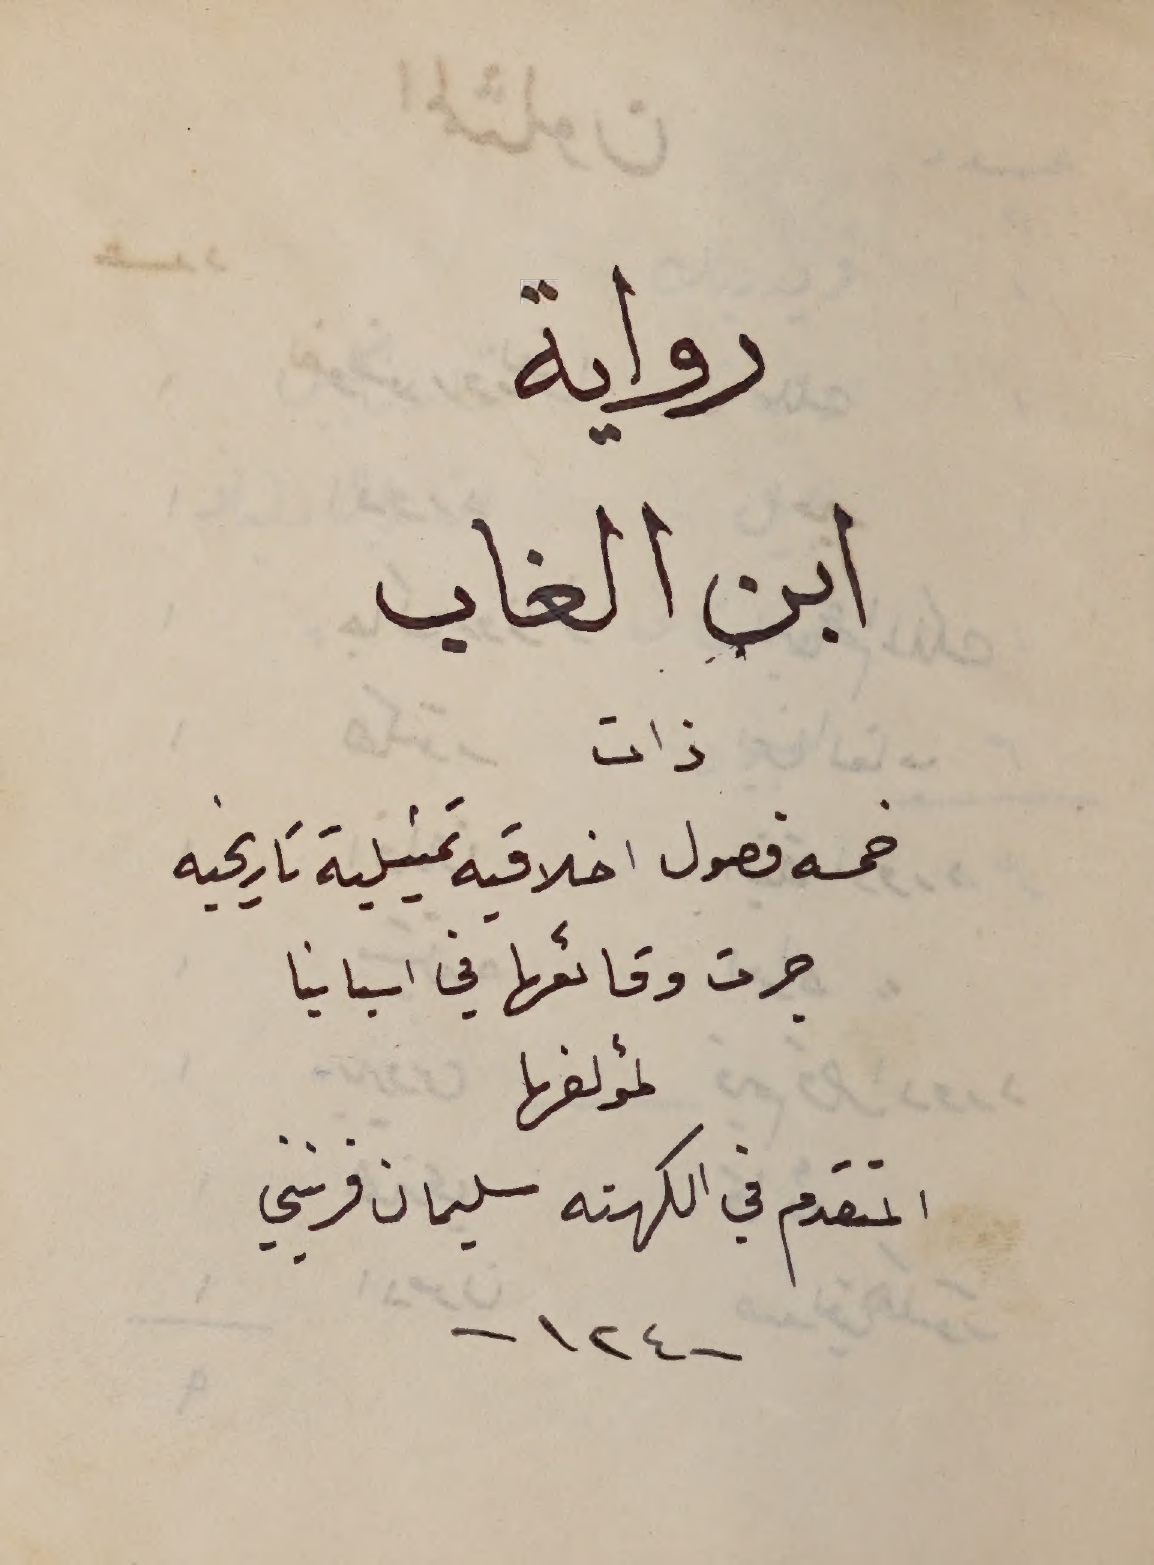 رواية
ابن الغاب
ذات
خمسه فصول اخلاقيه تمثيلية تاريخيه
جرت وقائعها في اسبانيا
لمؤلفها
المتقدم في الكهنه سليمان فرنيني
-١٢٤-